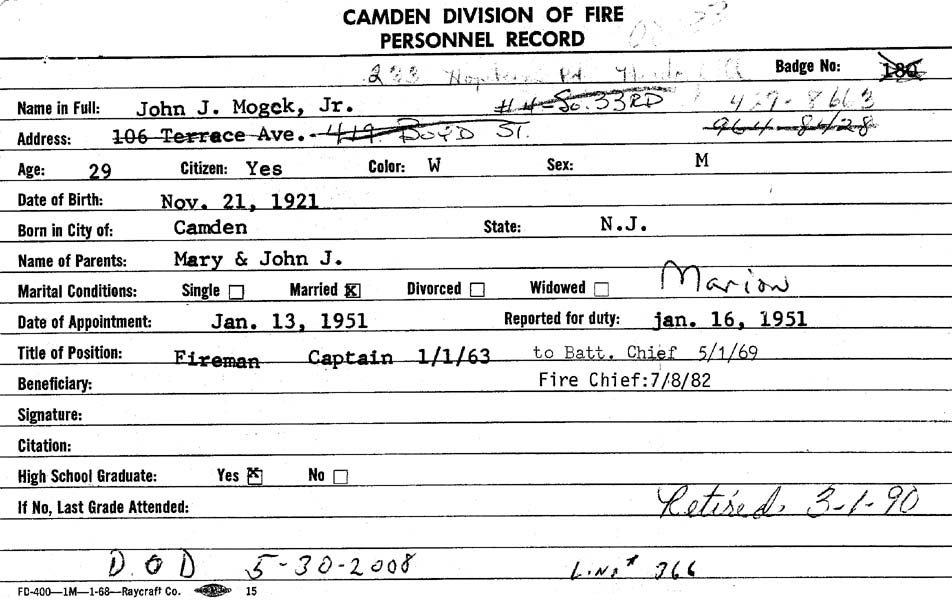 CAMDEN DIVISION OF FIRE
PERSONNEL RECORD
233 Rd. Badge No: 180
Name in Full: John J. Mogck, Jr. #4-So. 33RD 429-8663
Address: 106 Terrace Ave. 419 BOYD ST. 964-8428
Age: 29 Citizen: Yes Color: W Sex: M
Date of Birth: Nov. 21, 1921
Born in City of: Camden State: N.J.
Name of Parents: Mary & John J.
Marital Conditions: Single Married x Divorced Widowed Marion
Date of Appointment: Jan. 13, 1951 Reported for duty: jan. 16, 1951
Title of Position: Fireman Captain 1/1/63 to Batt. Chief 5/1/69
Beneficiary: Fire Chief:7/8/82
Signature:
Citation:
High School Graduate: Yes x No
If No, Last Grade Attended: Retired. 3-1-90
D.O D 5-30-2008 L.No# 366
FD-400—1M—1-68—Raycraft Co. 15